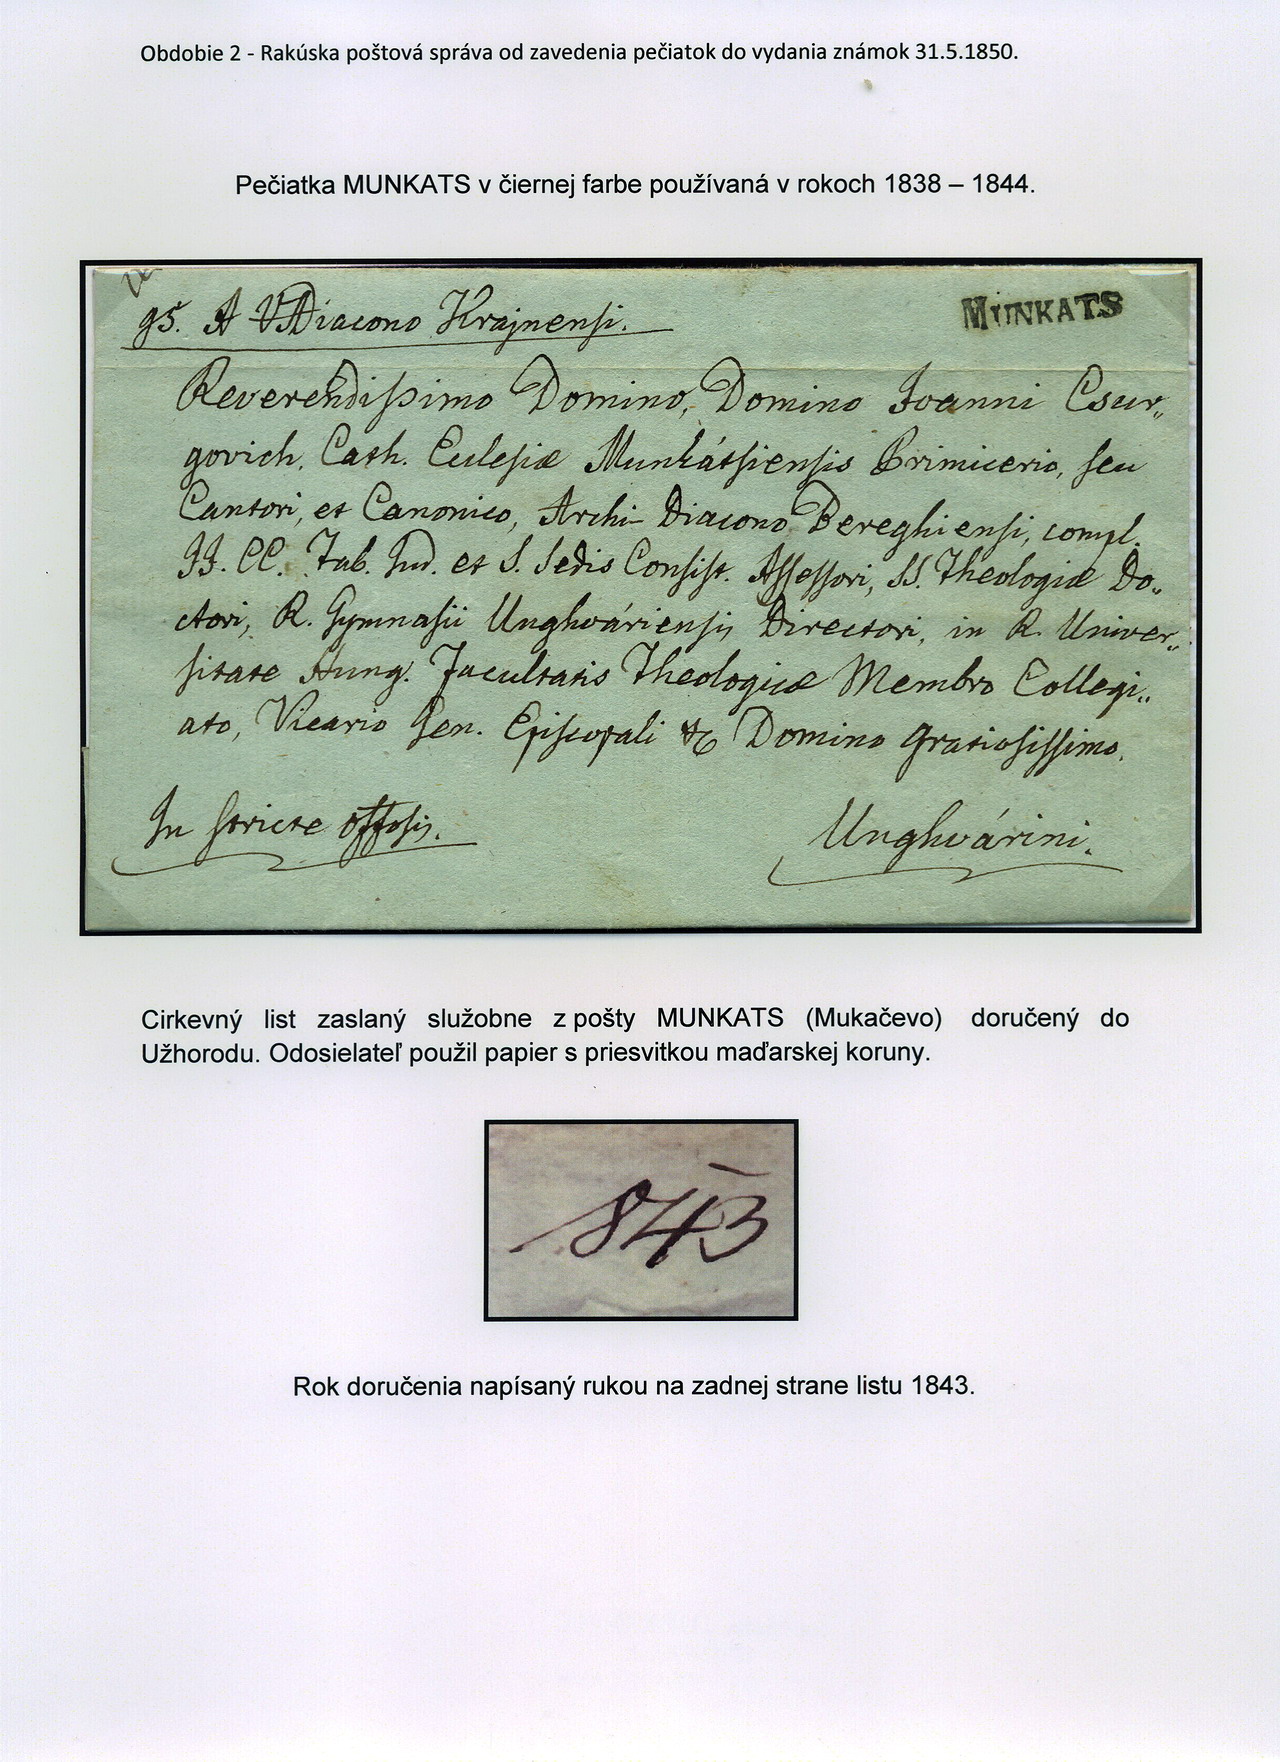 Obdobie 2 - Rakúska poštová správa od zavedenia pečiatok do vydania známok 31.5.1850.
Pečiatka MUNKATS v čiernej farbe používaná v rokoch 1838 – 1844.
95. A VADiacono Krajnensi.
MUNKATS
Reverendissimo Domino, Domino Joanni Csur„
govich, Cath. Eclesiæ Munkátsiensis Primicerio, seu
Cantori, et Canonico, Archi Diacono Bereghiensi, compl.
JJ. CC. Tab. Jud. et S. Sedis Consist. Assessori, SS. Theologiæ Do„
ctori, R. Gymnasii Unghváriensis Directori, in R. Univer„
sitate Hung. Facultatis Theologicæ Membro Collegi„
ato, Vicario Gen. Episcopali &c Domino Gratiosissimo.
In stricte offosis.
Unghvárini.
Cirkevný list zaslaný služobne z pošty MUNKATS (Mukačevo) doručený do
Užhorodu. Odosielateľ použil papier s priesvitkou maďarskej koruny.
843
Rok doručenia napísaný rukou na zadnej strane listu 1843.